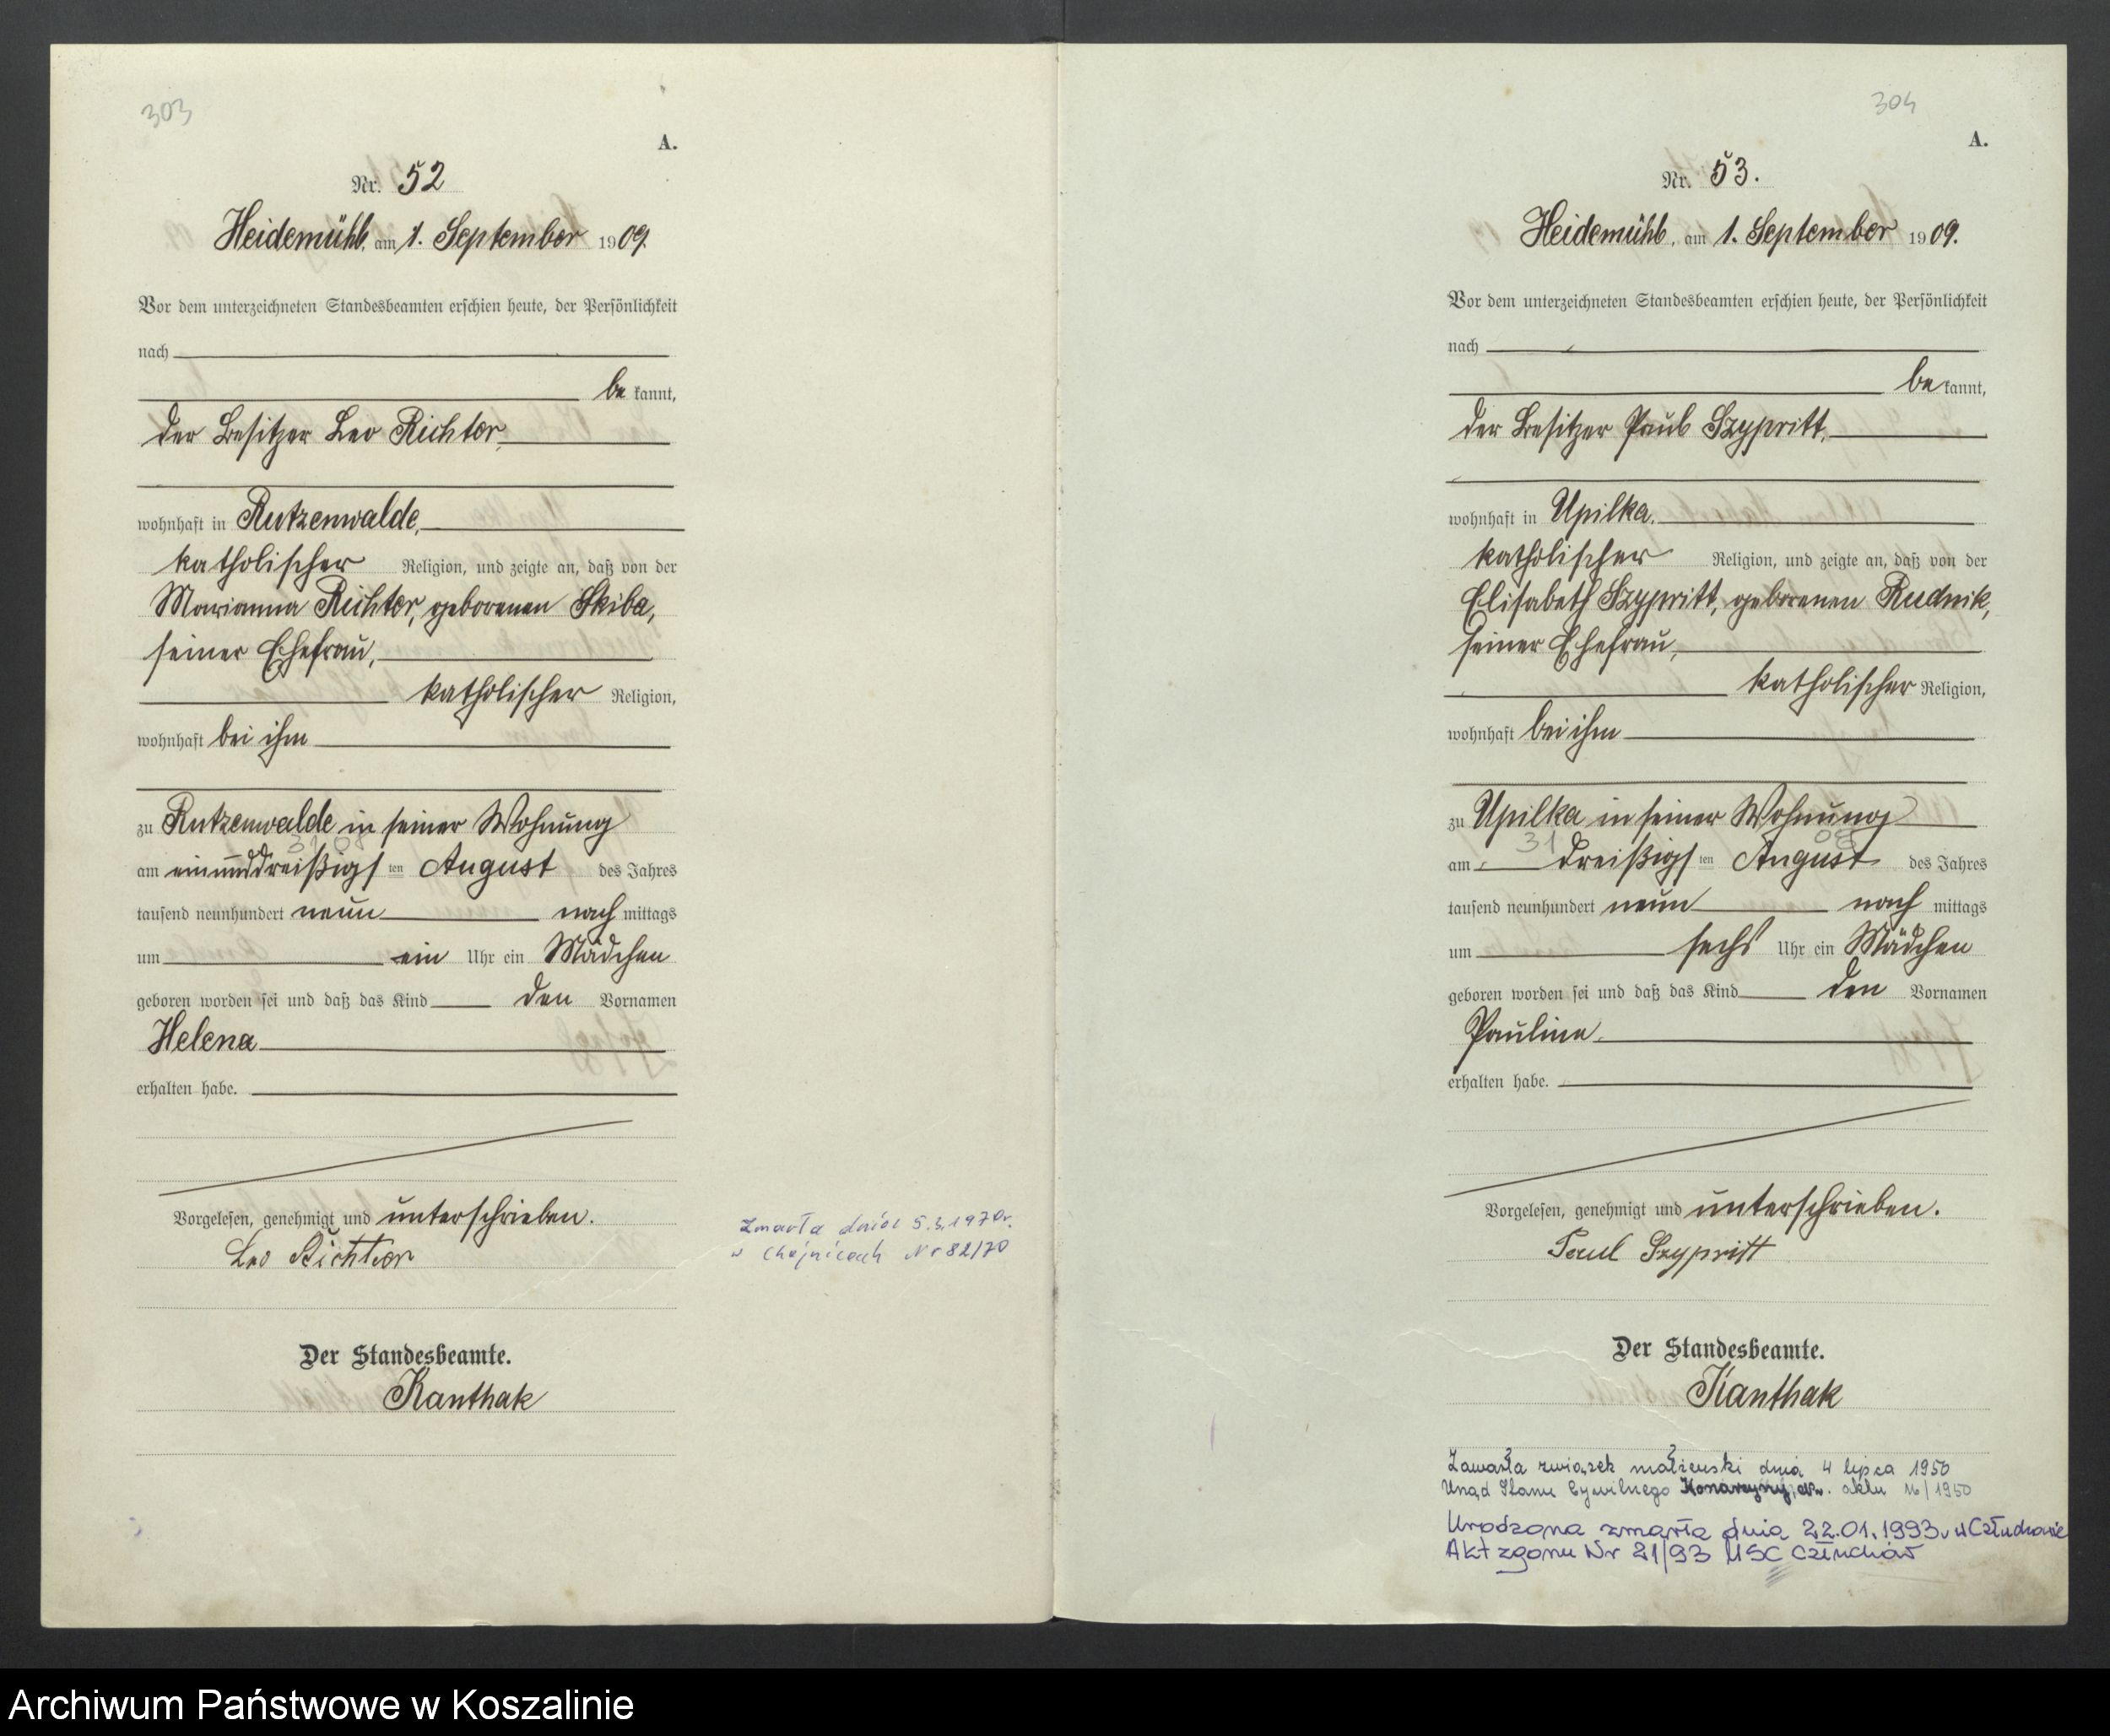 303
A.
Nr. 52
Heidemühl, am 1. September 1909.
Vor dem unterzeichneten Standesbeamten erschien heute, der Persönlichkeit
nach
be kannt,
der Besitzer Leo Richter,
wohnhaft in Rutzenwalde,
katholischer Religion, und zeigte an, daß von der
Marianna Richter, geborenen Skiba,
seiner Ehefrau,
katholischer Religion,
wohnhaft bei ihm
zu Rutzenwalde in seiner Wohnung
31 08
am einunddreißigsten August des Jahres
tausend neunhundert neun nach mittags
um ein Uhr ein Mädchen
geboren worden sei und daß das Kind den Vornamen
Helena
erhalten habe.
Vorgelesen, genehmigt und unterschrieben.
Leo Richter
Der Standesbeamte.
Kanthak
Zmarła dnia 5.3.1970r.
w Chojnicach Nr 82/70
304
A.
Nr. 53.
Heidemühl, am 1. September 1909.
Vor dem unterzeichneten Standesbeamten erschien heute, der Persönlichkeit
nach
be kannt,
der Besitzer Paul Szypritt,
wohnhaft in Upilka.
katholischer Religion, und zeigte an, daß von der
Elisabeth Szypritt, geborenen Rudnik,
seiner Ehefrau,
katholischer Religion,
wohnhaft bei ihm
zu Upilka in seiner Wohnung
31 08
am dreißigsten August des Jahres
tausend neunhundert neun nach mittags
um sechs Uhr ein Mädchen
geboren worden sei und daß das Kind den Vornamen
Pauline
erhalten habe.
Vorgelesen, genehmigt und unterschrieben.
Paul Szypritt
Der Standesbeamte.
Kanthak
Zawarła związek małżeński dnia 4 lipca 1950
Urząd Stanu Cywilnego Konarzyny, Nr. aktu 16/1950
Urodzona zmarła dnia 22.01.1993r w Człuchowie
Akt zgonu Nr 21/93 USC Człuchów
Archiwum Państwowe w Koszalinie